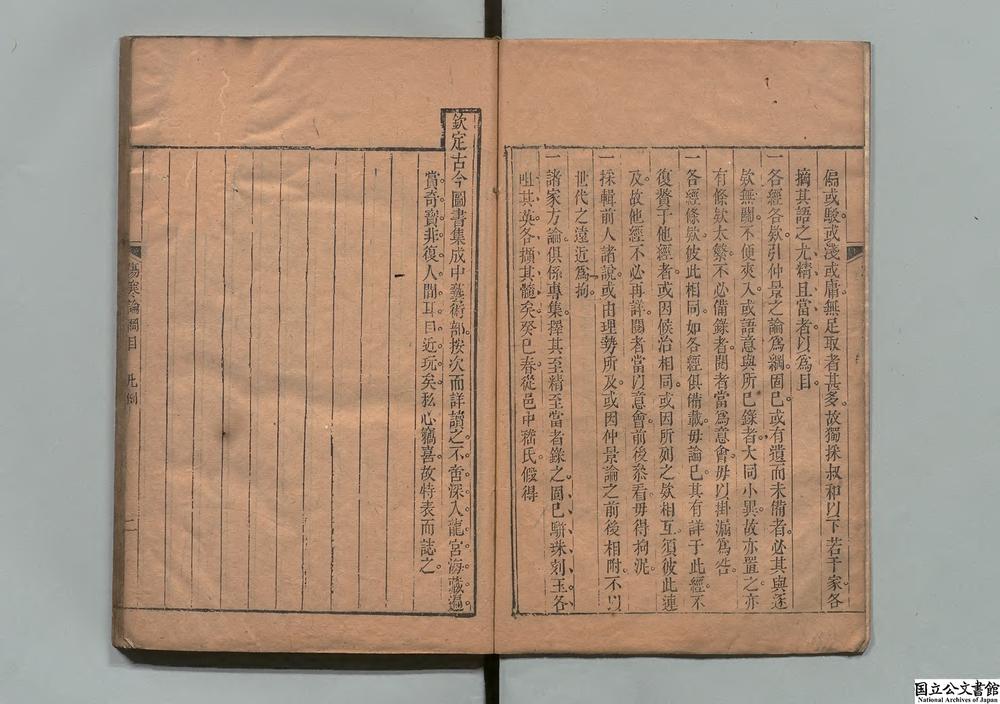 偏或駁或淺或庸無足取者甚多故獨採叔和以下若干家各
摘其語之尤精且當者以為目
一各經各欵引仲景之論為綱固已或有遺而未備者必其與逐
欵無關不便夾入或語意與所已錄者大同小異故亦置之亦
有條欵太繁不必備錄者閱者當為意會毋以掛漏為咎
一各經條欵彼此相同如各經俱備載毋論已其有詳于此經不
復贅于他經者或因候治相同或因所列之欵相互須彼此連
及故他經不必再詳閱者當以意會前後叅看毋得拘泥
一採輯前人諸說或由理勢所及或因仲景論之前後相附不以
世代之遠近為拘
一諸家方論俱係專集擇其至精至當者錄之固已駢珠刻玉各
咀其英各擷其髓矣癸巳春從邑中嵇氏假得
欽定古今圖書集成中藝術部按次而詳讀之不啻深入龍宮海藏遍
賞奇寶非復人間耳目近玩矣私心竊喜故特表而誌之
傷寒論綱目 凡例 二
国立公文書館
National Archives of Japan